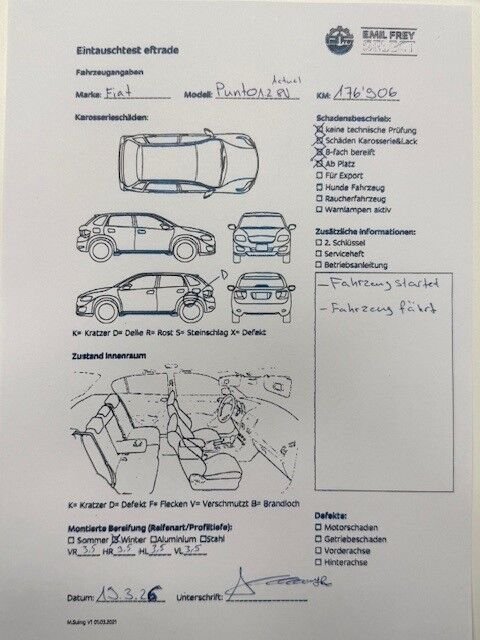 EMIL FREY
SELECT
Eintauschtest eftrade
Fahrzeugangaben
Marke: Fiat Modell: Punto 1.2 8V KM: 176'906
Karosserieschäden:
D
K= Kratzer D= Delle R= Rost S= Steinschlag X= Defekt
Zustand Innenraum
K= Kratzer D= Defekt F= Flecken V= Verschmutzt B= Brandloch
Montierte Bereifung (Reifenart/Profiltiefe):
Sommer Winter Aluminium Stahl
VR 3.5 HR 3.5 HL 3.5 VL 3.5
Datum: 19.3.26 Unterschrift:
M.Suling V1 01.03.2021
Schadensbeschrieb:
keine technische Prüfung
Schäden Karosserie&Lack
8-fach bereift
Ab Platz
Für Export
Hunde Fahrzeug
Raucherfahrzeug
Warnlampen aktiv
Zusätzliche Informationen:
2. Schlüssel
Serviceheft
Betriebsanleitung
- Fahrzeug started
- Fahrzeug fährt
Defekte:
Motorschaden
Getriebeschaden
Vorderachse
Hinterachse